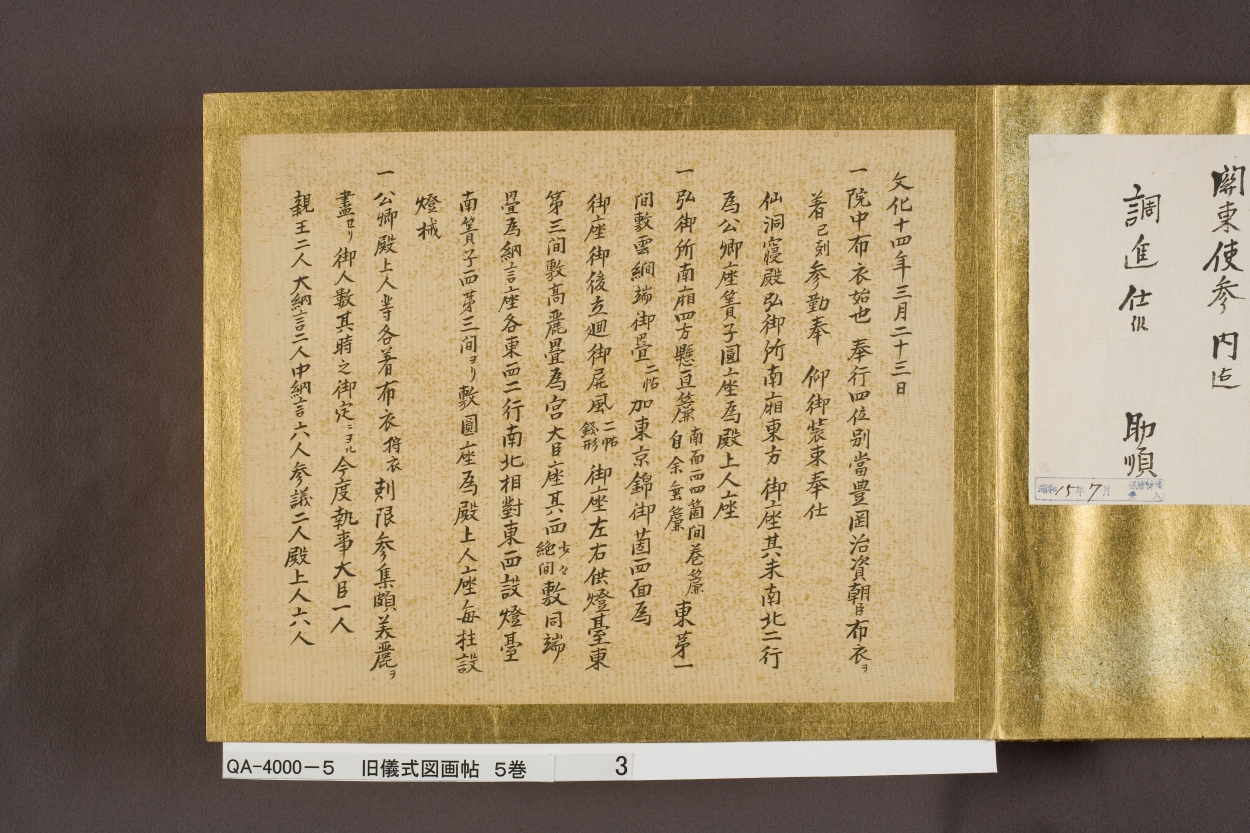 關東使参 内迄
調進 仕候 助順
昭和15年7月
文化十四年三月二十三日
一院中布衣始也 奉行四位別當豊岡治資朝臣布衣ヲ
著巳刻参勤奉 仰御裝束奉仕
仙洞寝殿弘御所南廂東方 御座其末南北二行
為公卿座簀子圓座為殿上人座
一弘御所南廂四方懸亘簾南面西四箇間巻簾自余垂簾東第一
間敷雲繝端御畳二帖加東京錦御茵西面為
御座御後立廻御屏風二帖銭形 御座左右供燈臺東
第三間敷高麗畳為宮大臣座其西少々絶間敷同端
畳為納言座各東西二行南北相對東西設燈臺
南簀子西第三間ヨリ敷圓座為殿上人座毎柱設
燈械
一公卿殿上人等各著布衣狩衣刻限参集頗美麗ヲ
盡セリ御人數其時之御定ニヨル今度執事大臣一人
親王二人大納言二人中納言六人参議二人殿上人六人
QA-4000-5 旧儀式図画帖 5巻 3